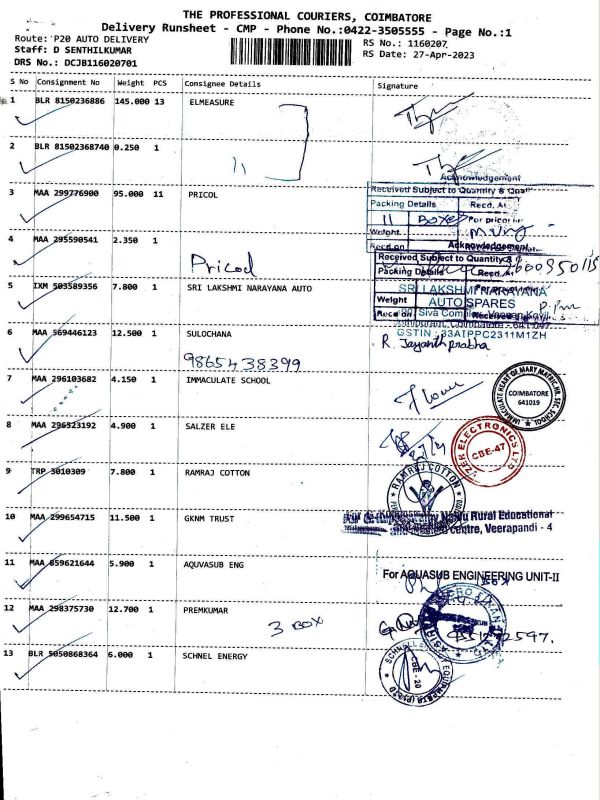 THE PROFESSIONAL COURIERS, COIMBATORE
Delivery Runsheet - CMP - Phone No.:0422-3505555 - Page No.:1
Route: P20 AUTO DELIVERY
RS No.: 1160207
Staff: D SENTHILKUMAR
RS Date: 27-Apr-2023
DRS No.: DCJB116020701
S No Consignment No Weight PCS Consignee Details Signature
1 BLR 8150236886 145.000 13 ELMEASURE
2 BLR 81502368740 0.250 1
11
Acknowledgement
Received Subject to Quantity &
Packing Details Recd.
3 MAA 299776900 95.000 11 PRICOL
11 BOXES For pricol
Weight
Recd on Acknowledgement
4 MAA 295590541 2.350 1
Received Subject to Quantity &
Pricol
Packing Details Recd.
5 IXM 503589356 7.800 1 SRI LAKSHMI NARAYANA AUTO
SRI LAKSHMI NARAYANA
Weight AUTO SPARES
Siva Complex
Coimbatore - 641 047
GSTIN : 33AIPPC2311M1ZH
6 MAA 569446123 12.500 1 SULOCHANA
R. Jayanthprabha
9865438399
7 MAA 296103682 4.150 1 IMMACULATE SCHOOL
IMMACULATE HEART OF MARY MATRIC. HR. SEC. SCHOOL
COIMBATORE
641019
8 MAA 296323192 4.900 1 SALZER ELE
ELECTRONICS LTD
CBE-47
9 TRP 3010309 7.800 1 RAMRAJ COTTON
RAMRAJ COTTON
10 MAA 299654715 11.500 1 GKNM TRUST
Rural Educational
Centre, Veerapandi - 4
11 MAA 859621644 5.900 1 AQUVASUB ENG
For AQUASUB ENGINEERING UNIT-II
12 MAA 298375730 12.700 1 PREMKUMAR
3 BOX
13 BLR 5050868364 6.000 1 SCHNEL ENERGY
CBE - 20